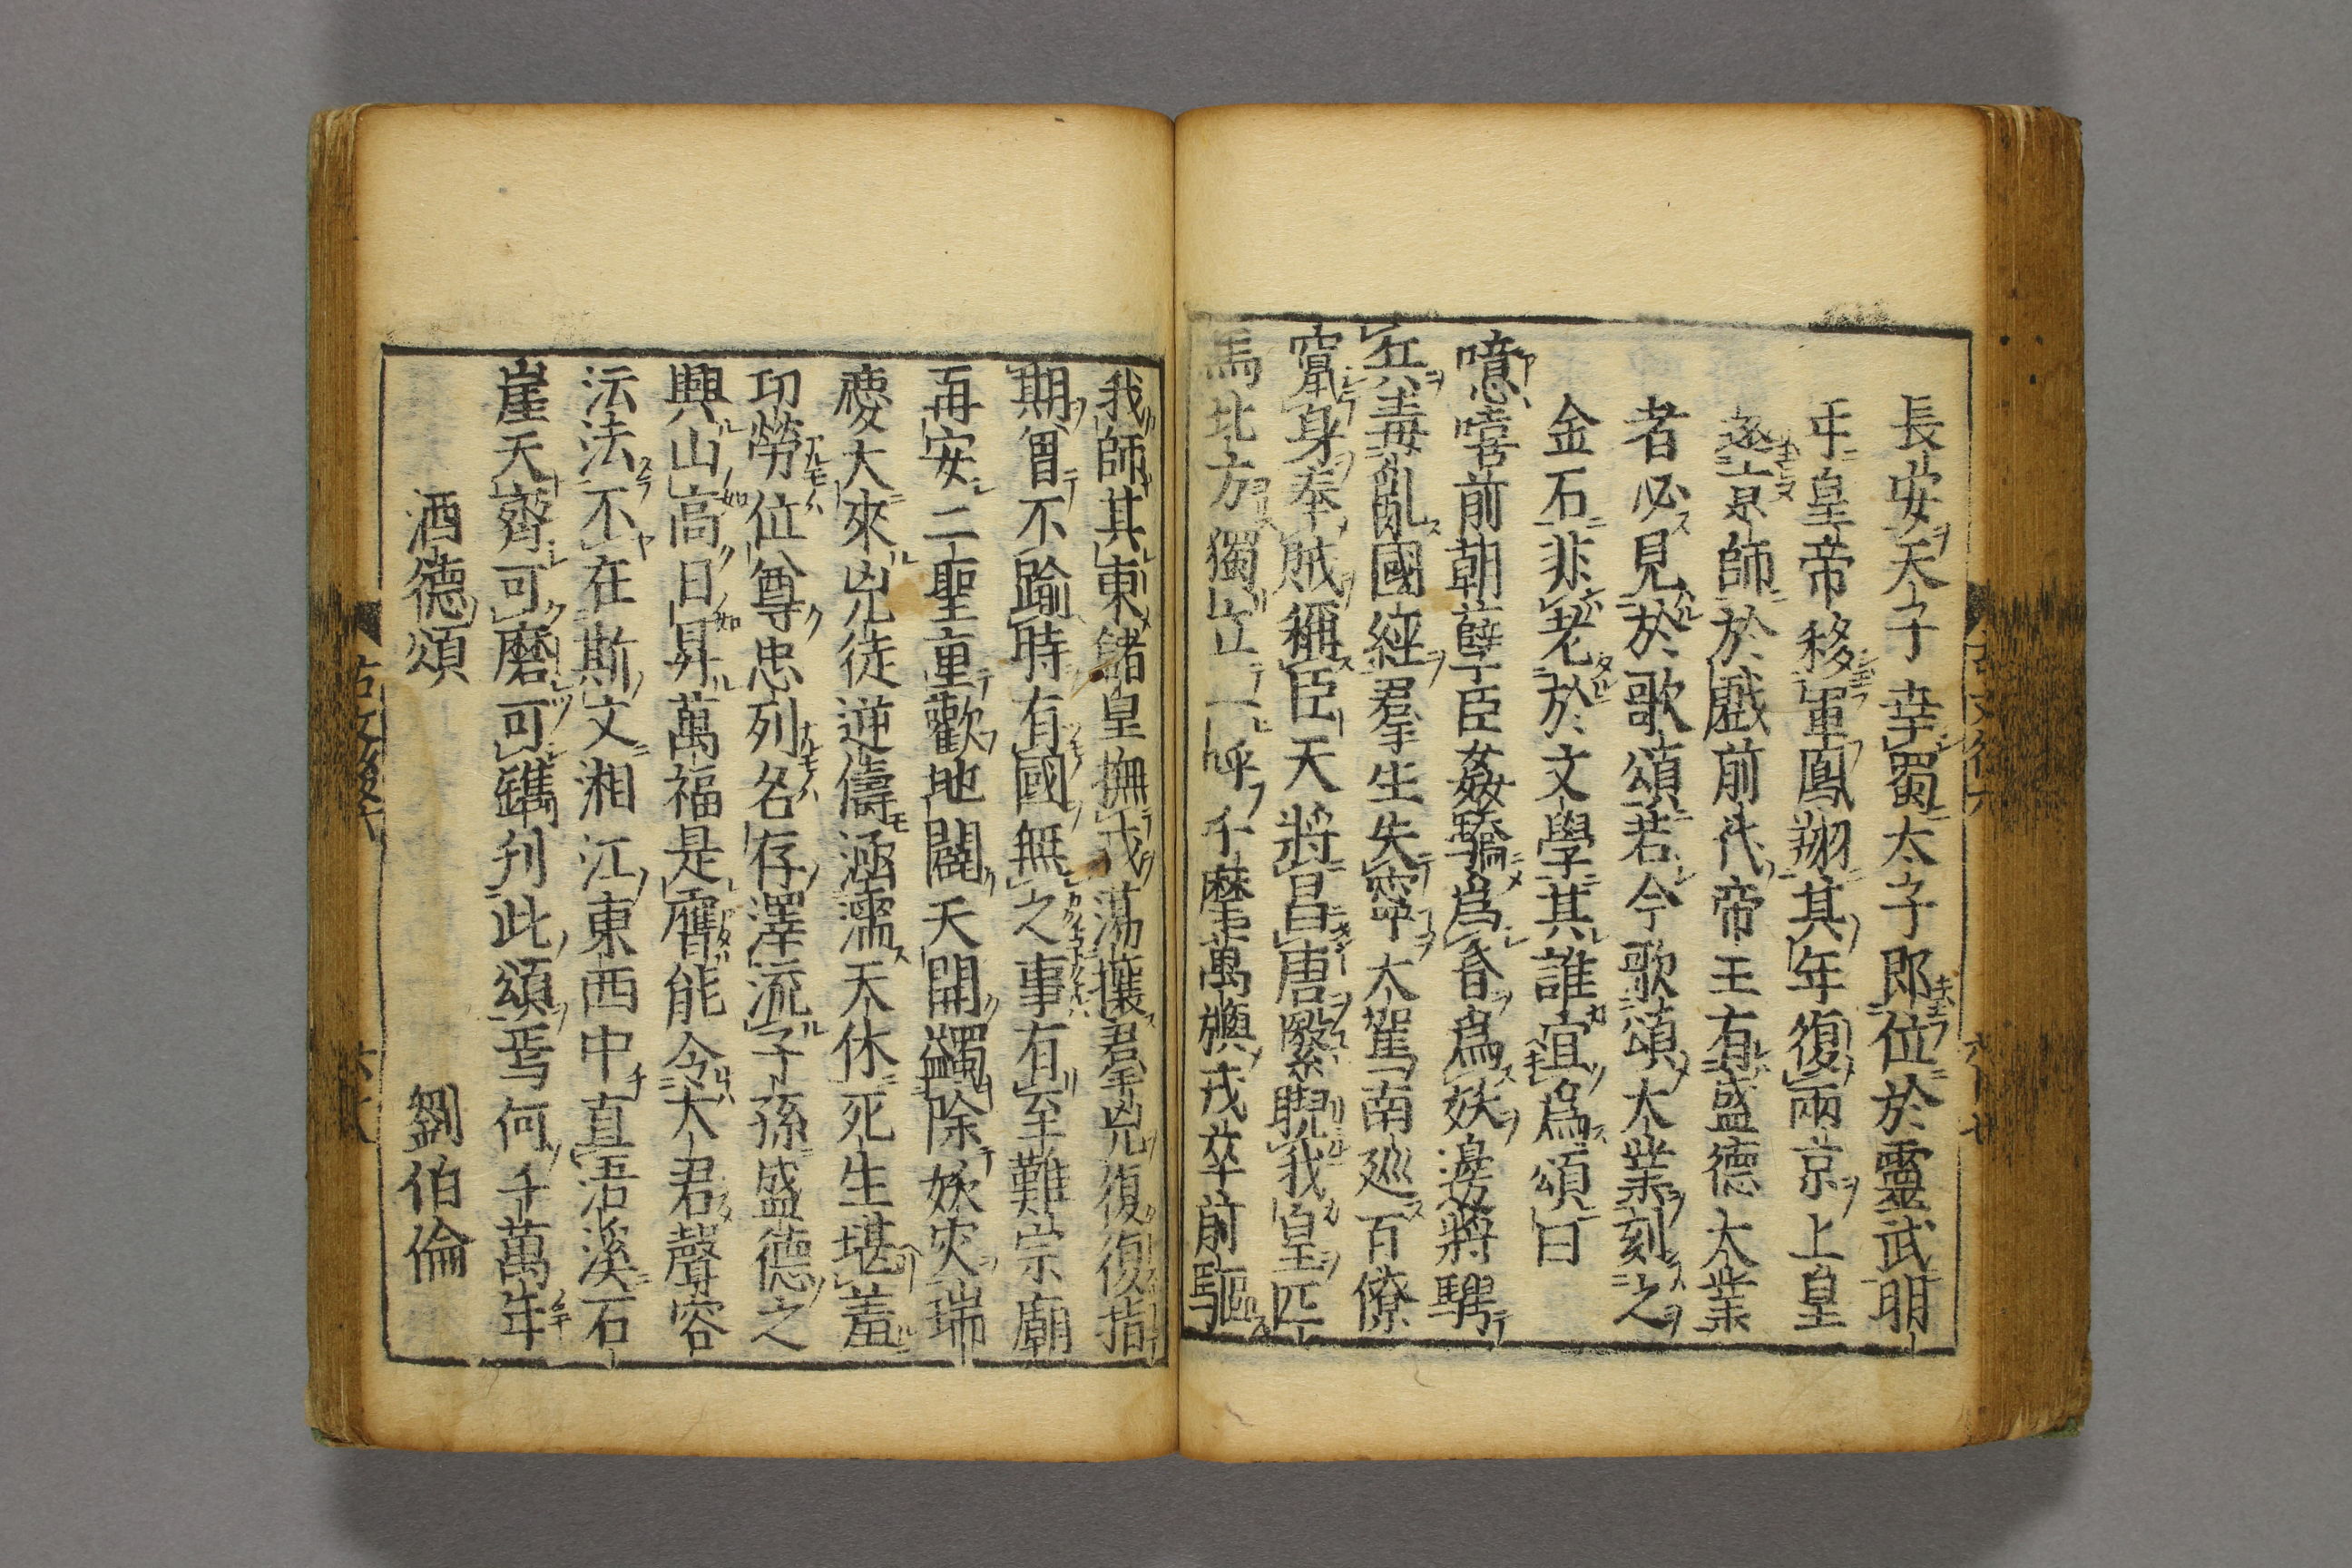 長安天子幸蜀太子郎位於靈武明
年皇帝移軍鳳翔其年復兩京上皇
還京師於戲前代帝王有盛德大業
者必見於歌頌若今歌頌大業刻之
金石非老於文學其誰宜爲頌曰
噫嘻前朝孽臣姦驕爲昏爲妖邊將騁
兵毒亂國經羣生失寧大駕南廵百僚
竄身奉賊稱臣天將昌唐繄睨我皇匹
馬北方獨立一呼千麾萬旟戎卒前驅
我師其東儲皇撫戎蕩攘羣兇復復指
期曾不踰時有國無之事有至難宗廟
再安二聖重歡地闢天開蠲除妖灾瑞
慶大來兇徒逆儔涵濡天休死生堪羞
功勞位尊忠列名存澤流子孫盛德之
興山高日昇萬福是膺能令大君聲容
沄法不在斯文湘江東西中直浯溪石
崖天齊可磨可鐫刋此頌焉何千萬年
酒德頌 劉伯倫
古文後六